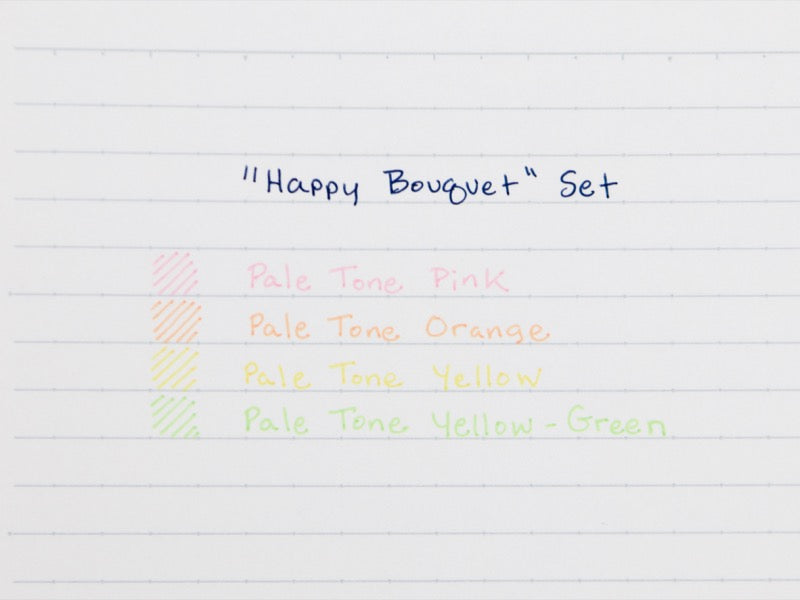 "Happy Bouquet" Set
Pale Tone Pink
Pale Tone Orange
Pale Tone Yellow
Pale Tone Yellow-Green